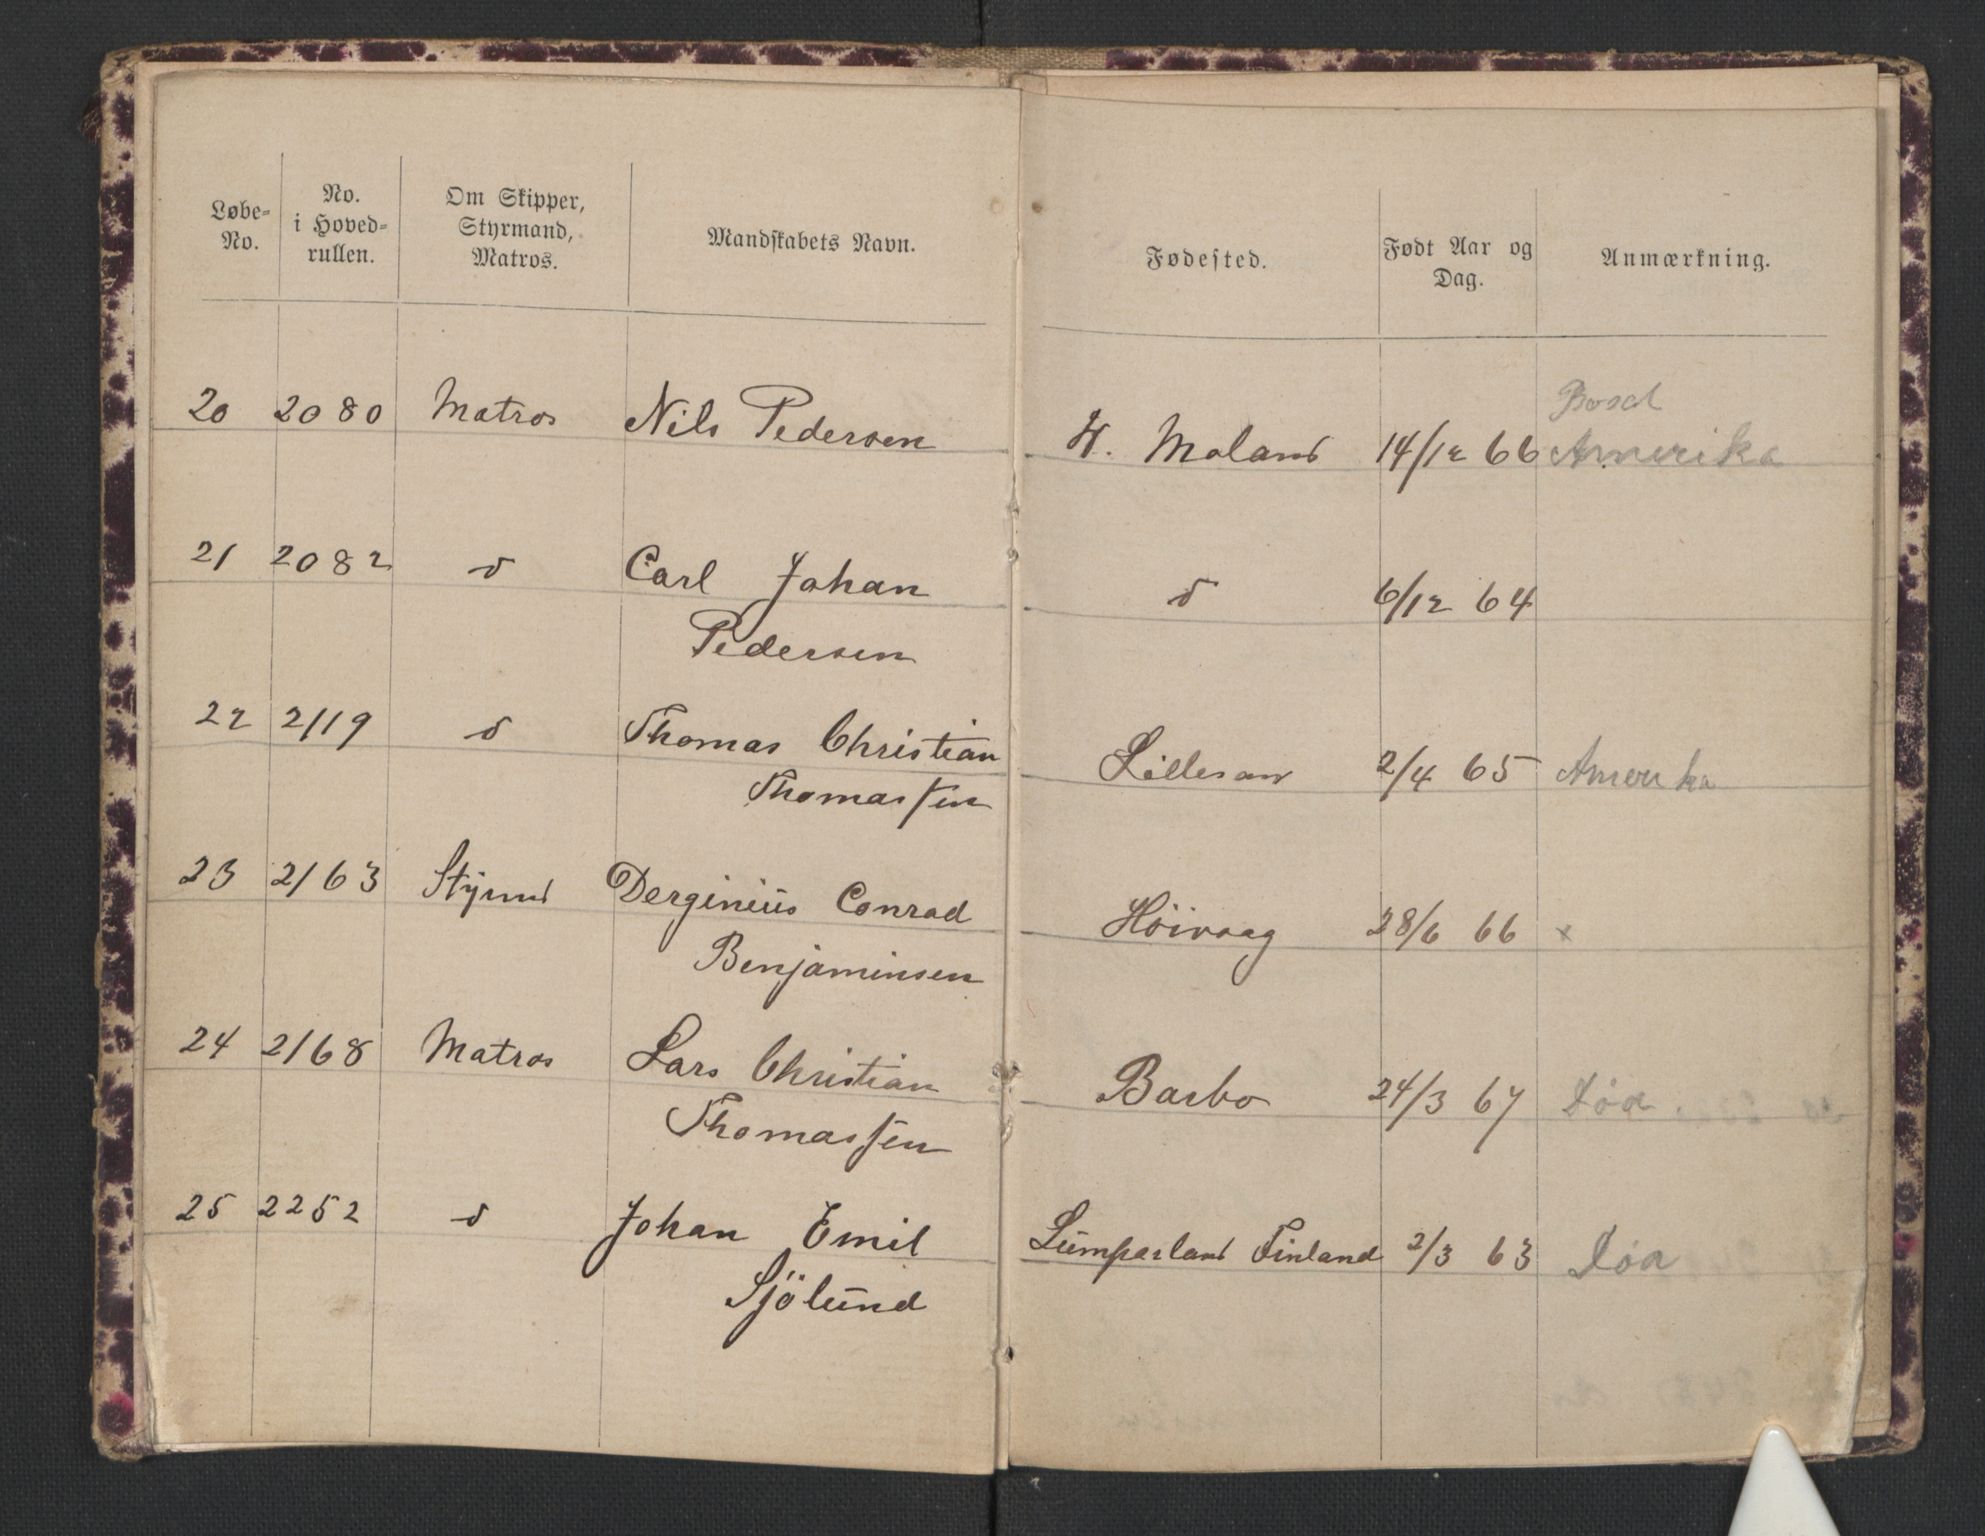 Løbe-No.	No. i Hoved-rullen.	Om Skipper, Styrmand, Matros.	Mandskabets Navn.	Fødested.	Født Aar og Dag.	Anmærkning.
20	2080	Matros	Nils Pedersen	W. Moland	14/12 66	Amerika
21	2082	d	Carl Johan	d	6/12 64
Pedersen
22	2119	d	Thomas Christian	Lillesan	2/4 65	Amerika
Thomassen
23	2163	Styrmd	Derginius Conrad	Höivaag	28/6 66	x
Benjaminsen
24	2168	Matros	Lars Christian	Barbo	24/3 67	Død
Thomassen
25	2252	d	Johan Emil	Lumparland Finland	2/3 63	Død
Sjölund